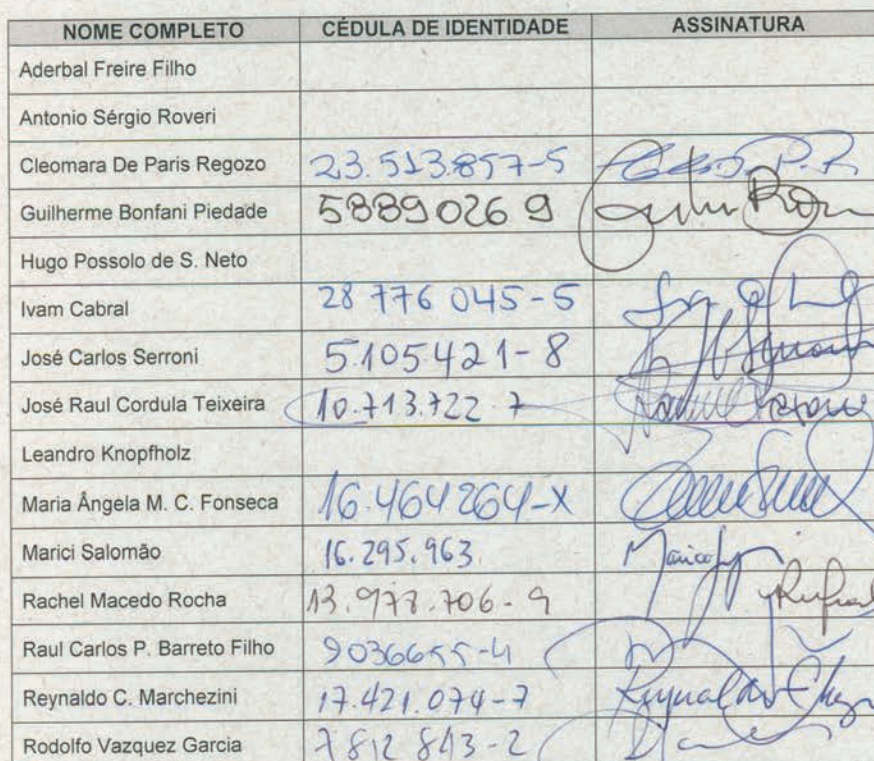 NOME COMPLETO CÉDULA DE IDENTIDADE ASSINATURA
Aderbal Freire Filho
Antonio Sérgio Roveri
Cleomara De Paris Regozo 23.513.857-5
Guilherme Bonfani Piedade 58890269
Hugo Possolo de S. Neto
Ivam Cabral 28 776 045-5
José Carlos Serroni 5.105.421-8
José Raul Cordula Teixeira 10.713.722-7
Leandro Knopfholz
Maria Ângela M. C. Fonseca 16.464264-X
Marici Salomão 16.295.963
Rachel Macedo Rocha 13.978.706-9
Raul Carlos P. Barreto Filho 9036655-4
Reynaldo C. Marchezini 17.421.074-7
Rodolfo Vazquez Garcia 7 812 843-2